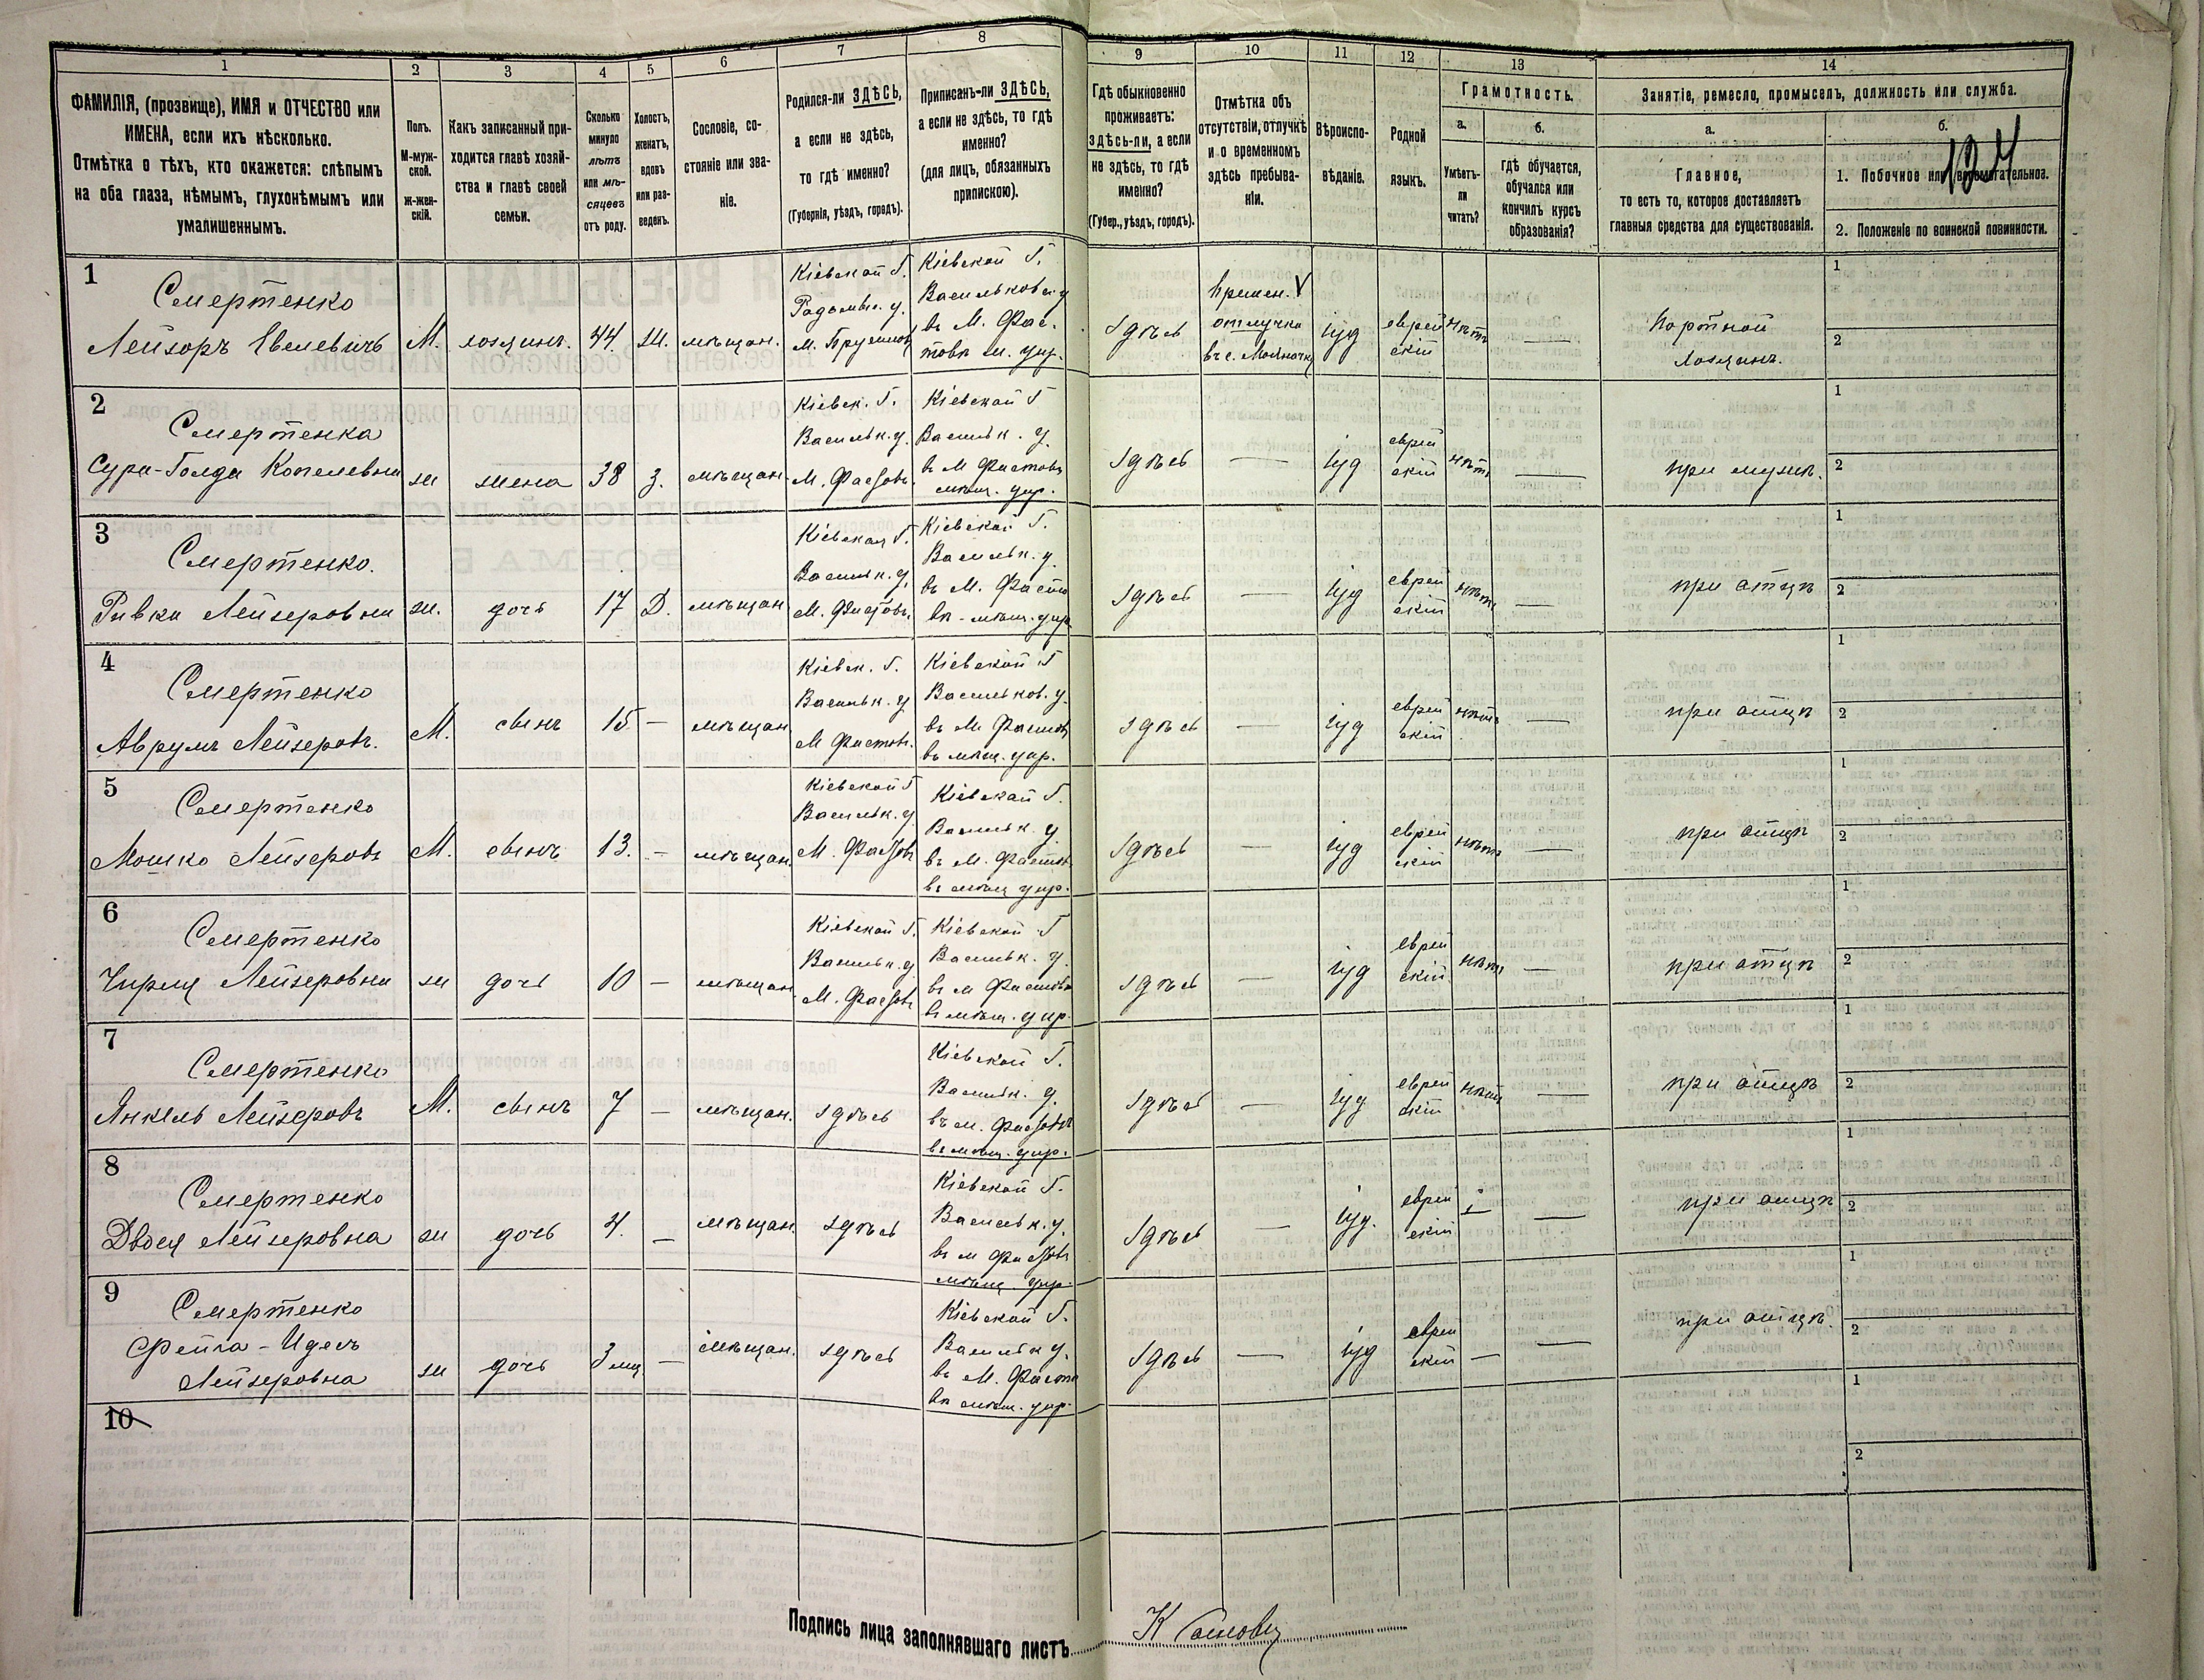 1 2 3 4 5 6 7 8 9 10 11 12 13 14
ФАМИЛІЯ, (прозвище), ИМЯ и ОТЧЕСТВО или
ИМЕНА, если ихъ нѣсколько.
Отмѣтка о тѣхъ, кто окажется: слѣпымъ
на оба глаза, нѣмымъ, глухонѣмымъ или
умалишеннымъ.
Полъ.
М-муж-
ской.
ж-жен-
скій.
Какъ записанный при-
ходится главѣ хозяй-
ства и главѣ своей
семьи.
Сколько
минуло
лѣтъ
или мѣ-
сяцевъ
отъ роду.
Холостъ,
женатъ,
вдовъ
или раз-
веденъ.
Сословіе, со-
стояніе или зва-
ніе.
Родился-ли ЗДѢСЬ,
а если не здѣсь,
то гдѣ именно?
(Губернія, уѣздъ, городъ).
Приписанъ-ли ЗДѢСЬ,
а если не здѣсь, то гдѣ
именно?
(для лицъ, обязанныхъ
припискою).
Гдѣ обыкновенно
проживаетъ:
здѣсь-ли, а если
не здѣсь, то гдѣ
именно?
(Губер., уѣздъ, городъ).
Отмѣтка объ
отсутствіи, отлучкѣ
и о временномъ
здѣсь пребыва-
ніи.
Вѣроиспо-
вѣданіе.
Родной
языкъ.
Грамотность.
а.
Умѣетъ-
ли
читать?
б.
Гдѣ обучается,
обучался или
кончилъ курсъ
образованія?
Занятіе, ремесло, промыселъ, должность или служба.
а.
Главное,
то есть то, которое доставляетъ
главныя средства для существованія.
б.
124
1. Побочное или вспомогательное.
2. Положеніе по воинской повинности.
1
Смертенко
Лейзоръ
М.
хозяинъ.
44.
ж.
мѣщан.
Кіевской Г.
Радомыс. у.
Кіевской Г.
Васильков. у
въ М. Фас-
това м. упр.
здѣсь
Времен. V
отлучка
въ с.
іуд
еврей
скій
нѣтъ
Портной
Хозяинъ.
1
2
2
Смертенка
Сура-Голда Копелевна
ж
жена
38
З.
мѣщан.
Кіевск. Г.
Васильк. у.
М. Фастовъ
Кіевской Г
Васильк. у.
въ М Фастовъ
мѣщ. упр.
здѣсь
—
іуд
еврей
скій
нѣтъ
—
при мужѣ.
1
2
3
Смертенко.
Ривка Лейзеровна
ж.
дочь
17
Д.
мѣщан
Кіевской Г.
Васильк. у.
М. Фастовъ
Кіевской Г.
Васильк. у.
въ М. Фасто
вѣ - мѣщ. упр
здѣсь
—
іуд
еврей
скій
нѣтъ
—
при отцѣ
1
2
4
Смертенко
Аврумъ Лейзеровъ.
М.
сынъ
15
—
мѣщан
Кіевск. Г.
Васильк. у
М Фастовъ
Кіевской Г
Васильков. у.
въ М Фастов
въ мѣщ. упр.
здѣсь
—
іуд
еврей
скій
нѣтъ
—
при отцѣ
1
2
5
Смертенко
Мошко Лейзеровъ
М.
сынъ
13.
—
мѣщан
Кіевской Г
Васильк. у
М. Фастовъ
Кіевской Г.
Васильк. у.
въ М. Фастов
въ мѣщ упр.
здѣсь
—
іуд
еврей
скій
нѣтъ
—
при отцѣ
1
2
6
Смертенко
Лейзеровна
ж
дочь
10
—
мѣщан.
Кіевской Г.
Васильк. у
М. Фастовъ
Кіевской Г
Васильк. у.
въ М Фастов
въ мѣщ. упр.
здѣсь
—
іуд
еврей
скій
нѣтъ
—
при отцѣ
1
2
7
Смертенко
Янкель Лейзеровъ
М.
сынъ
7
—
мѣщан.
здѣсь
Кіевской Г.
Васильк. у.
въ М. Фастовъ
въ мѣщ. упр.
здѣсь
—
іуд
еврей
скій
нѣтъ
—
при отцѣ
1
2
8
Смертенко
Двося Лейзеровна
ж
дочь
4.
—
мѣщан.
здѣсь
Кіевской Г.
Васильк. у.
въ М Фастовъ
мѣщ. упр.
здѣсь
—
іуд.
еврей
скій
—
—
при отцѣ
1
2
9
Смертенко
Фейга - Идесъ
Лейзеровна
ж
дочь
3 мц
—
мѣщан.
здѣсь
Кіевской Г.
Васильк у.
въ М. Фасто
вѣ мѣщ. упр.
здѣсь
—
іуд
еврей
скій
—
—
при отцѣ.
1
2
10
1
2
Подпись лица заполнявшаго листъ